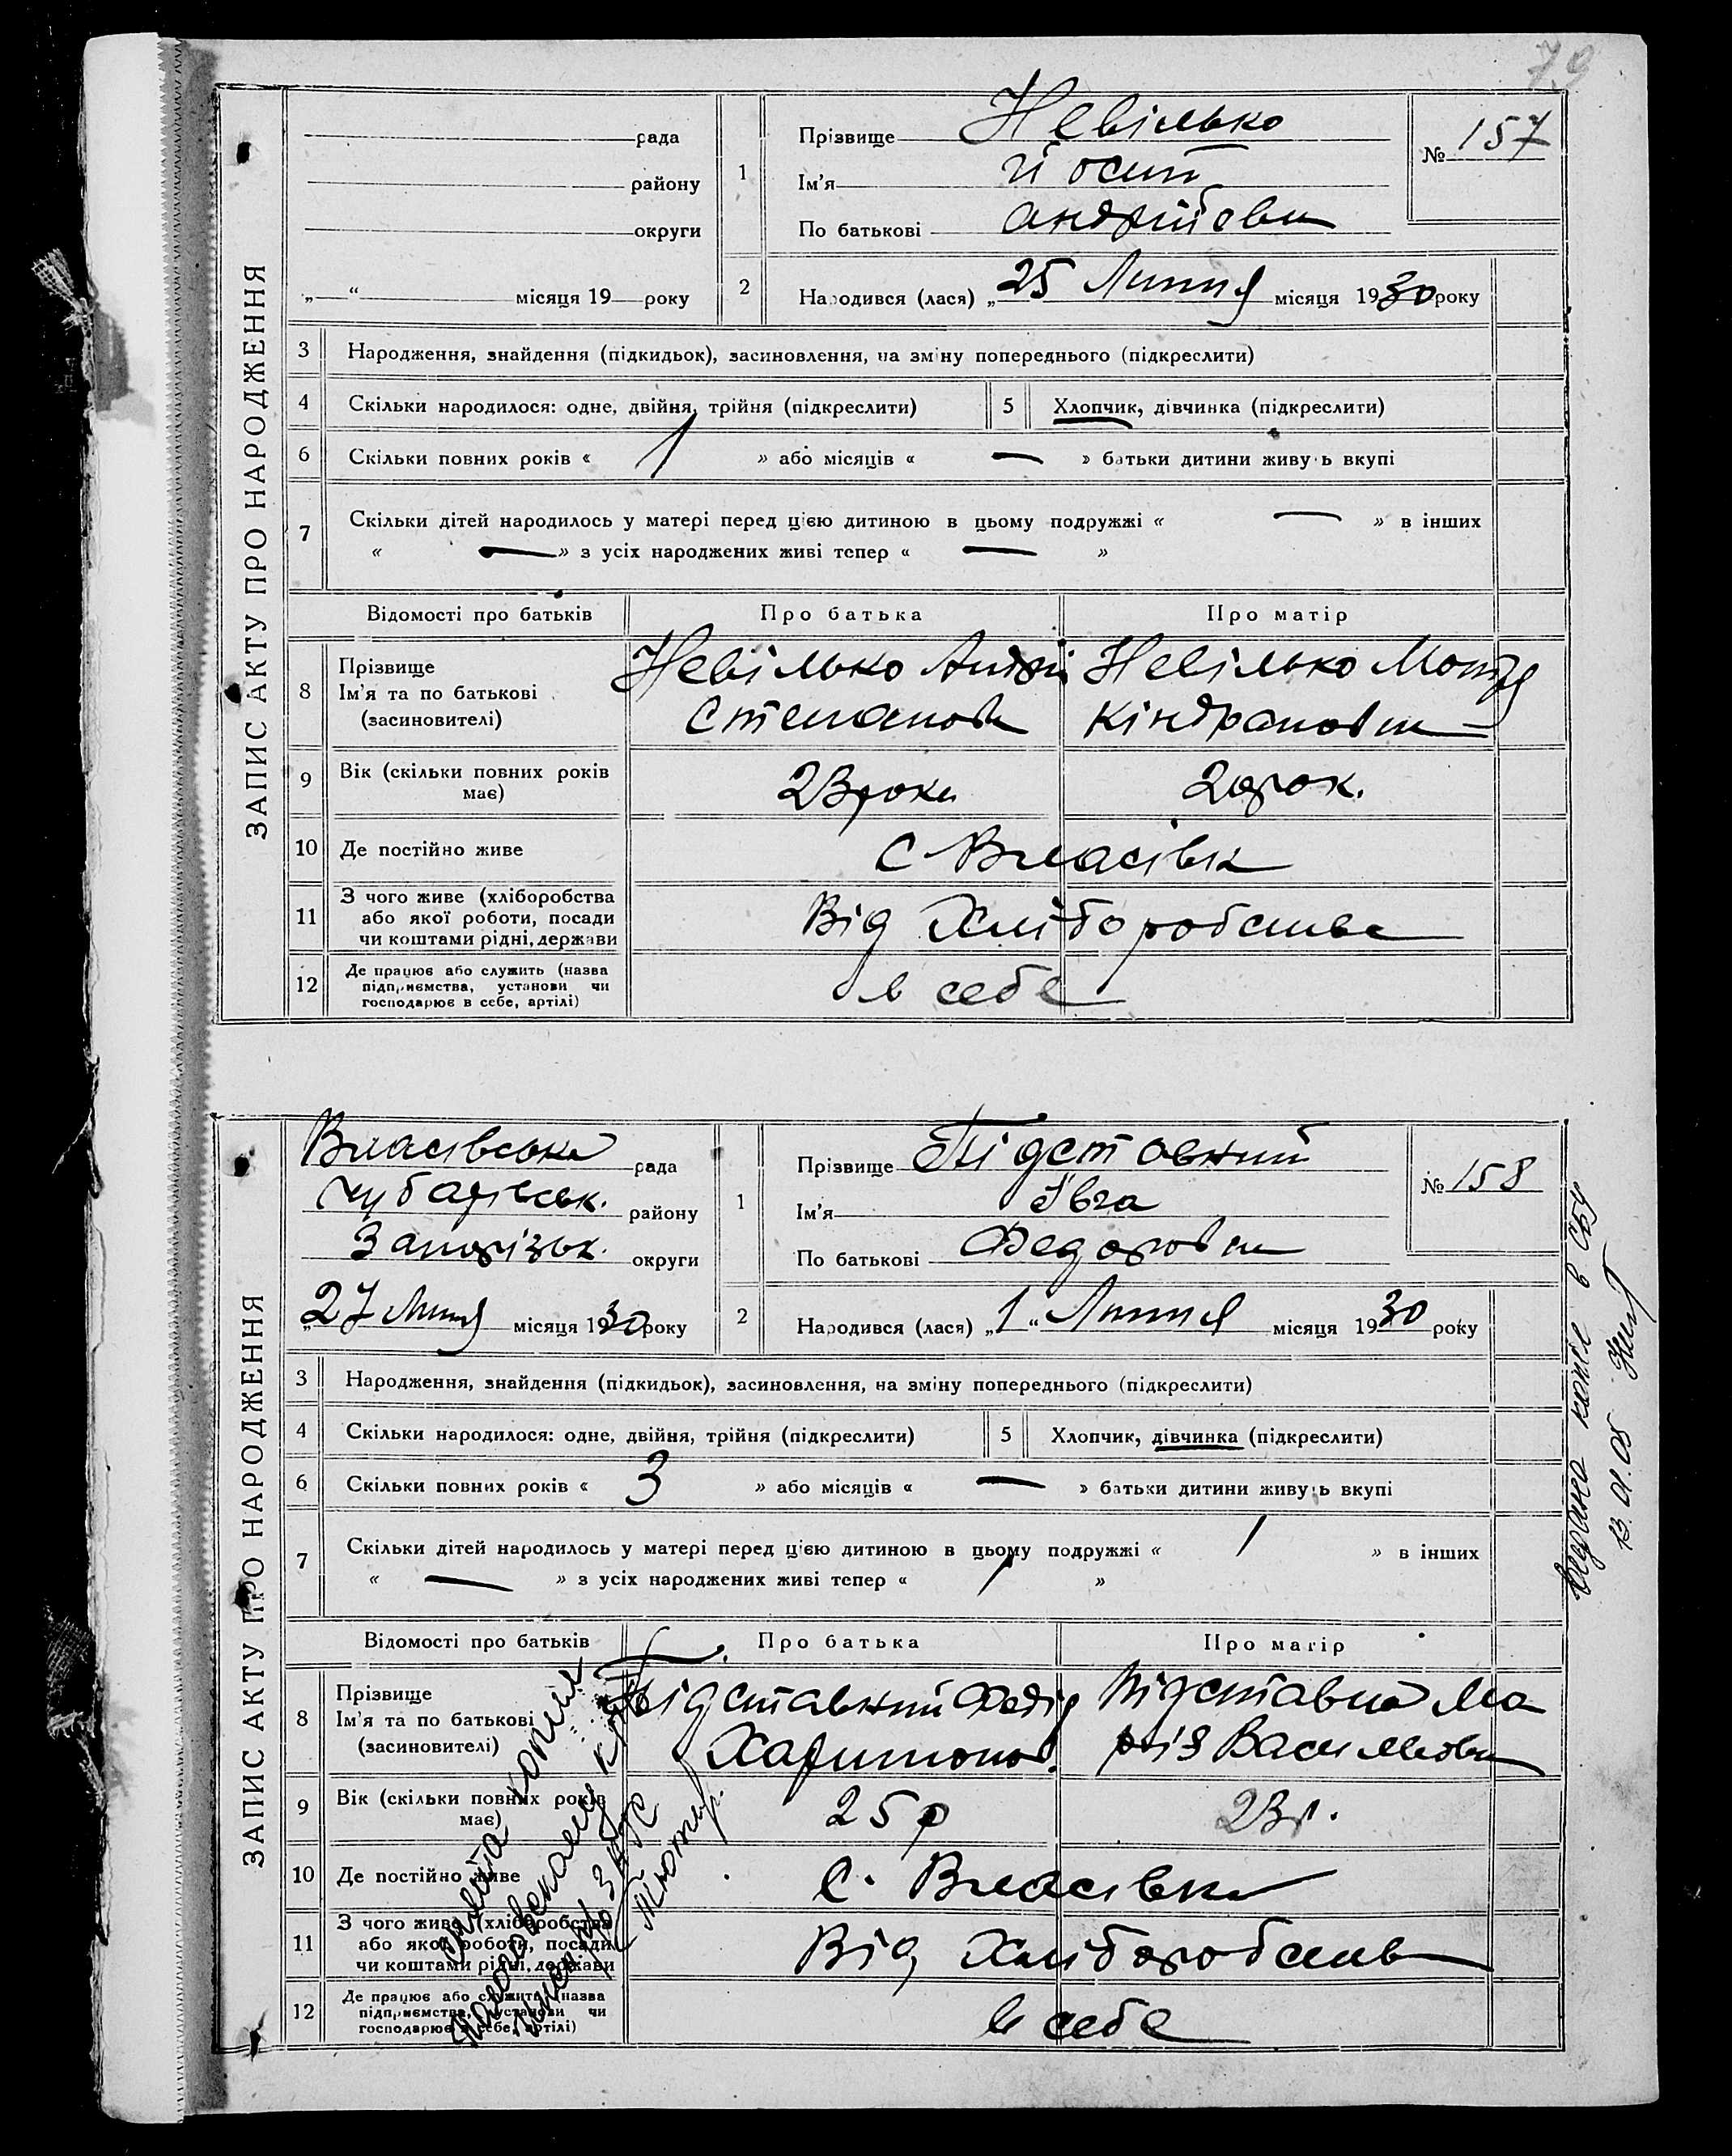 79
ЗАПИС АКТУ ПРО НАРОДЖЕННЯ
рада
району
округи
„ “ місяця 19 року
1
Прізвище Невілько
Ім'я Йосип
По батькові Андрійови
№ 157
2
Народився (лася) „25 Липня місяця 1930 року
3 Народження, знайдення (підкидьок), засиновлення, на зміну попереднього (підкреслити)
4 Скільки народилося: одне, двійня, трійня (підкреслити)
5 Хлопчик, дівчинка (підкреслити)
6 Скільки повних років « 1 » або місяців « — » батьки дитини живуть вкупі
7 Скільки дітей народилось у матері перед цією дитиною в цьому подружжі « — » в інших
« — » з усіх народжених живі тепер « — »
Відомості про батьків Про батька Про матір
8 Прізвище
Ім'я та по батькові
(засиновителі)
Невілько Андрі
Степанов
Невілько Мотря
Кіндратовн
9 Вік (скільки повних років
має)
23 роки
20 рок.
10 Де постійно живе
с Власівк
11 З чого живе (хліборобства
або якої роботи, посади
чи коштами рідні, держави
Від Хліборобства
12 Де працює або служить (назва
підприємства, установи чи
господарює в себе, артілі)
в себе
ЗАПИС АКТУ ПРО НАРОДЖЕННЯ
Власівська рада
Чубарівськ. району
Запорізьк. округи
„27 Липня місяця 1930 року
1
Прізвище Підставний
Ім'я Ївга
По батькові Федоровн
№ 158
2
Народився (лася) „1“ Липня місяця 1930 року
3 Народження, знайдення (підкидьок), засиновлення, на зміну попереднього (підкреслити)
4 Скільки народилося: одне, двійня, трійня (підкреслити)
5 Хлопчик, дівчинка (підкреслити)
6 Скільки повних років « 3 » або місяців « — » батьки дитини живуть вкупі
7 Скільки дітей народилось у матері перед цією дитиною в цьому подружжі « 1 » в інших
« — » з усіх народжених живі тепер « 1 »
Відомості про батьків Про батька Про матір
8 Прізвище
Ім'я та по батькові
(засиновителі)
Підставний Федір
Харитонов.
Підставна Ма
рія Василівн
9 Вік (скільки повних років
має)
25 р
23 р.
10 Де постійно живе
с. Власівка
11 З чого живе (хліборобства
або якої роботи, посади
чи коштами рідні, держави
Від Хліборобств
12 Де працює або служить (назва
підприємства, установи чи
господарює в себе, артілі)
в себе
Видана копія в СБУ
13.01.08